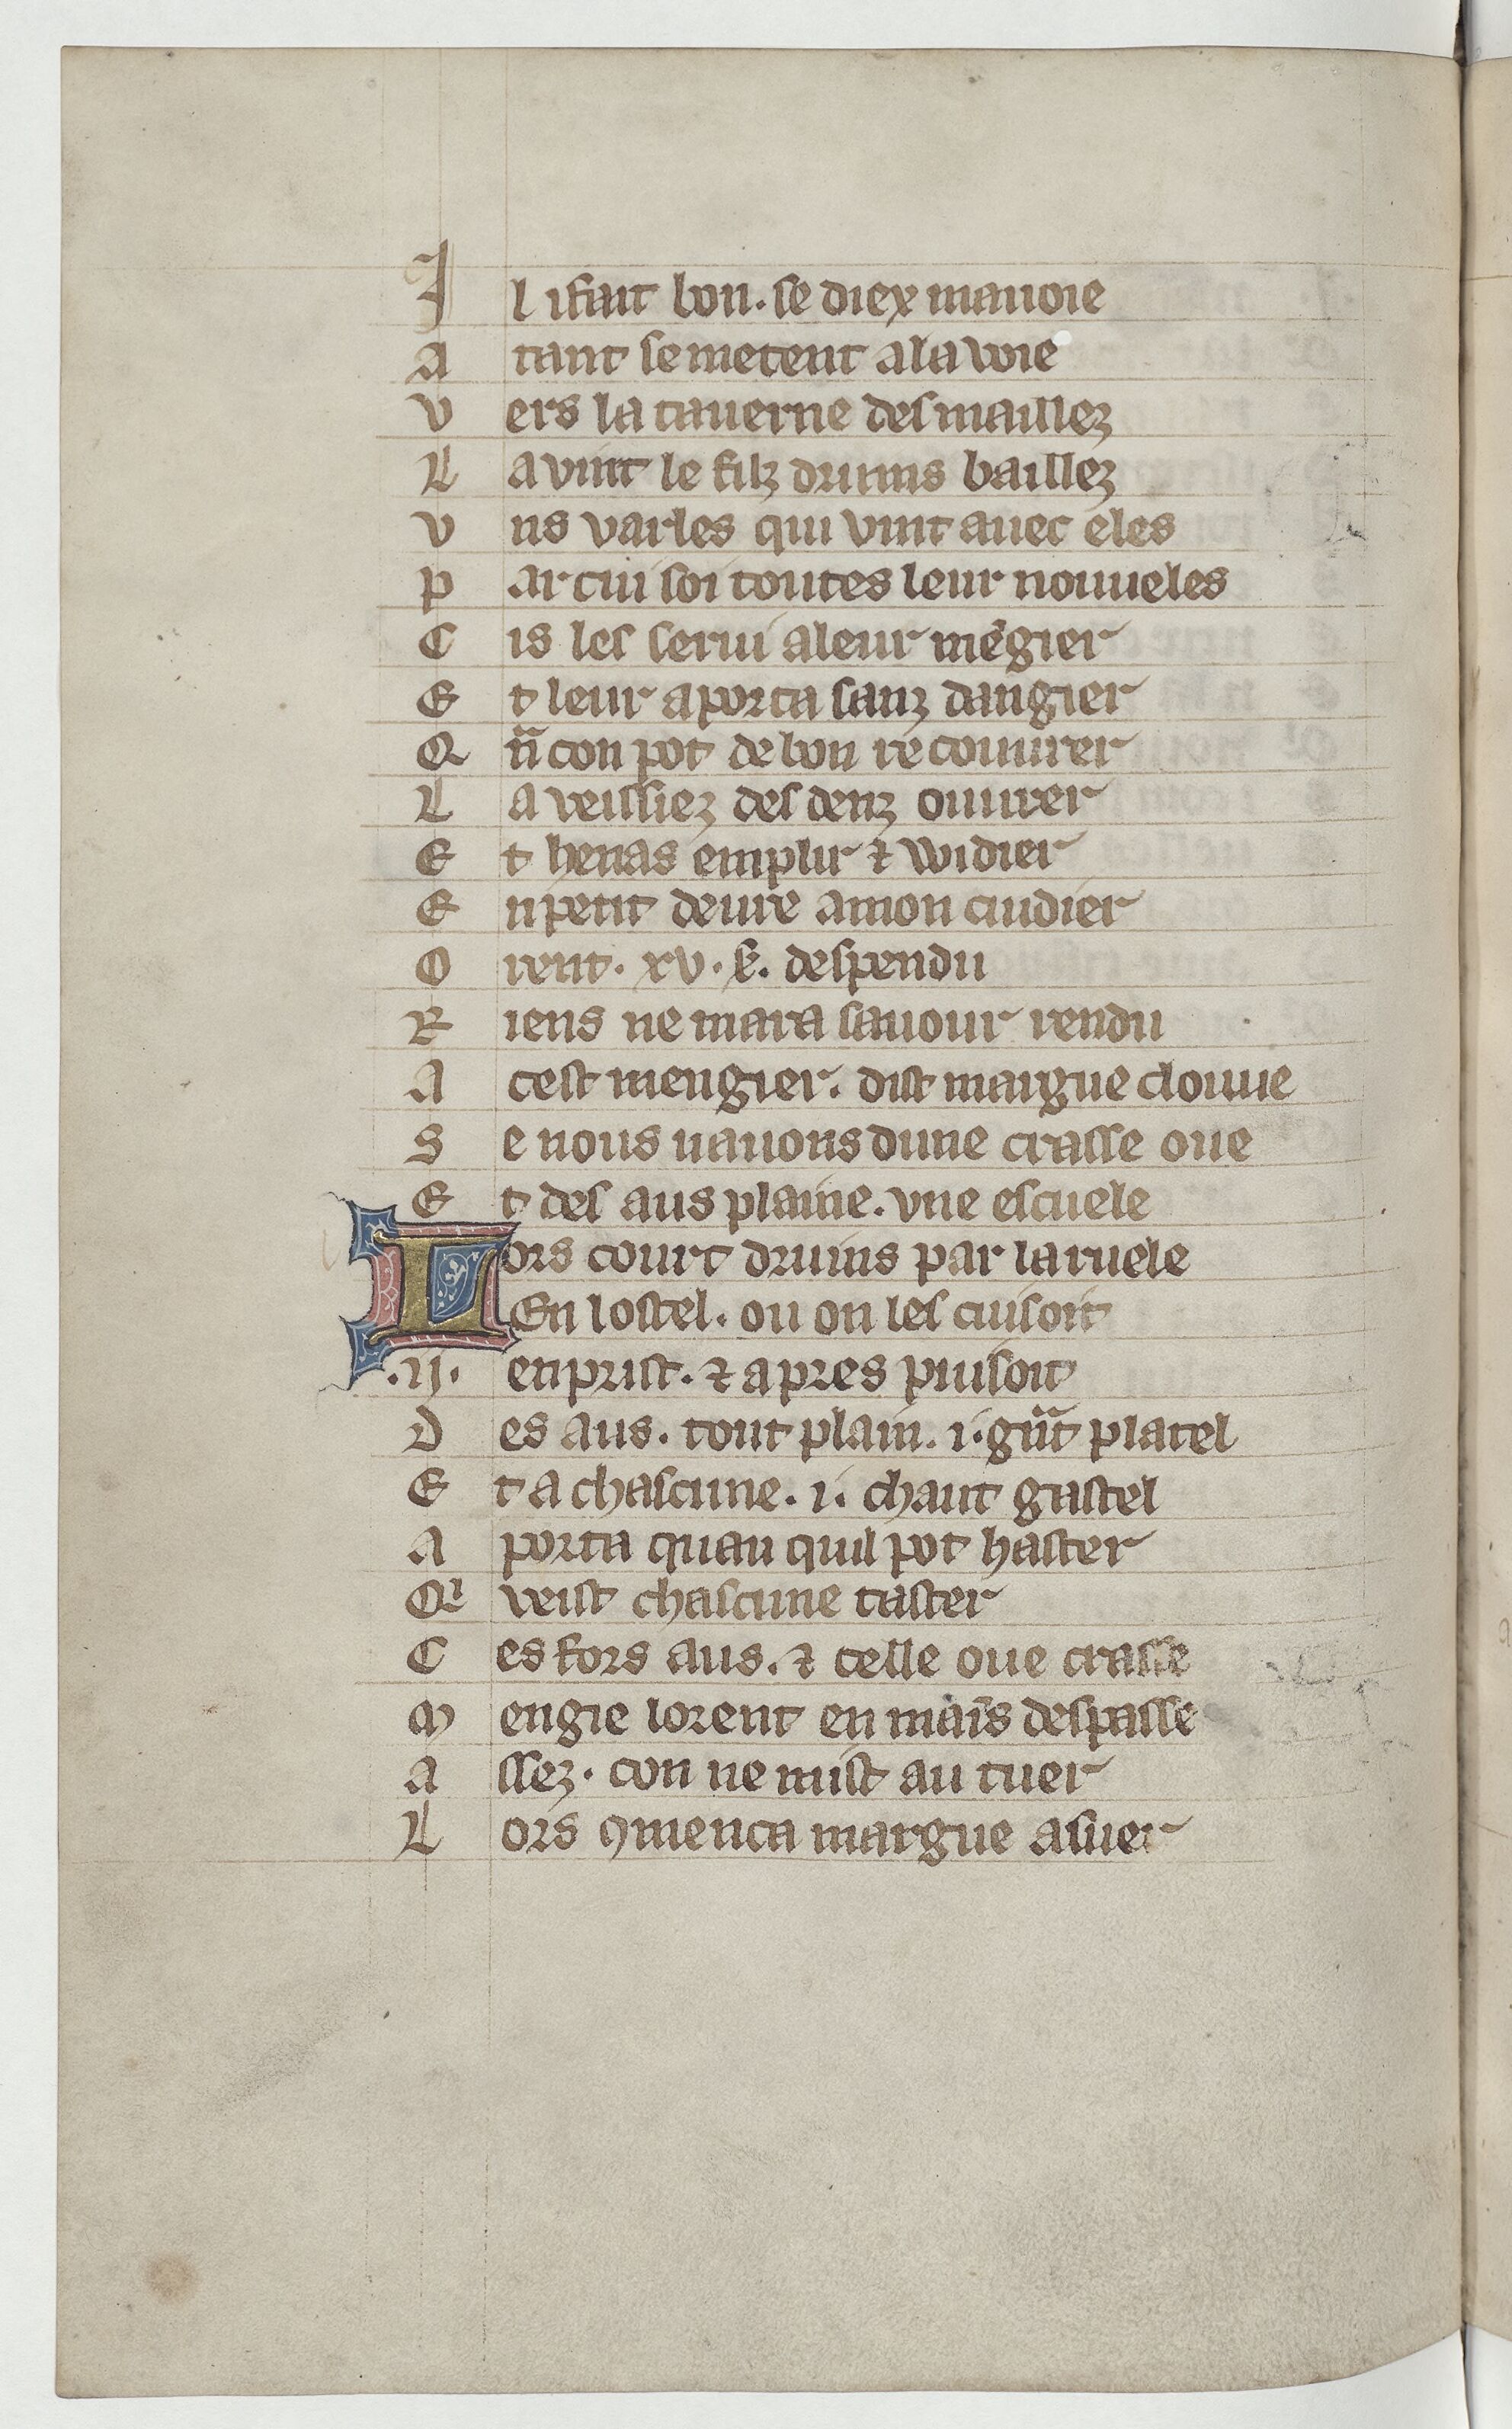 Il i fait bon. se diex mauoie
Atant se metent a la voie
Vers la tauerne des maillez
La vint le filz druins baillez
Vns varles qui vint auec eles
Par cui soi toutes leur nouueles
Cis les serui a leur mẽgier
Et leur aporta sanz dangier
Qñcon pot de bon recouurer
La veissiez des denz ouurer
Et henas emplir ⁊ widier
En petit deure a mon cuidier
Orent. xv. s̃. despendu
Riens ne mara sauour rendu
A cest mengier. dist margue clouue
Se nous nauons dune crasse oue
Et des aus plaine. vne escuele
Lors court druins par la ruele
En lostel. ou on les cuisoit
.ij. en prist. ⁊ apres puisoit
Des aus. tout plain. i. gñt platel
Et a chascune. i. chaut gastel
Aporta quan quil pot haster
Qi veist chascune taster
Ces fors aus. ⁊ celle oue crasse
Mengie lorent en mains despasse
Assez. con ne mist au tuer
Lors ꝯmenca margue a suer